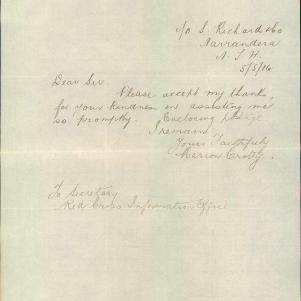 c/o S. Richard & Co
Narrandera
N. S. W.
5/5/16
Dear Sir.
Please accept my thanks,
for your kindness in assisting me
so promptly. Enclosing pledge
I remain
Yours Faithfully
Marion Crotty.
To Secretary
Red Cross Information Office